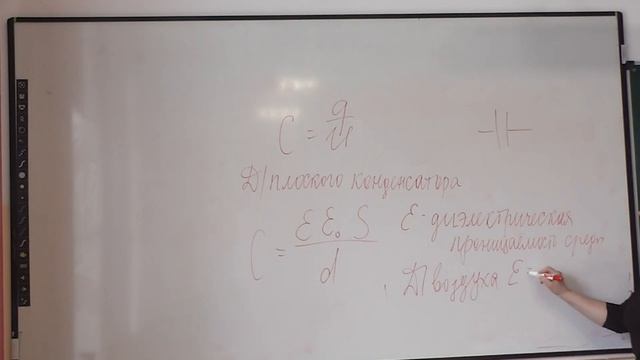 C = q/U
Д/плоского конденсатора
C = ε ε₀ S / d
ε - диэлектрическая
проницаемость среды
Д/воздуха ε